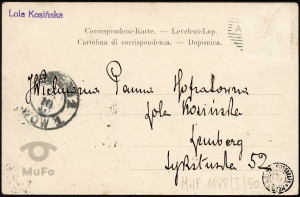 Lola Kosińska
Correspondenz-Karte. — Levelező-Lap.
Cartolina di corrispondenza. — Dopisnica.
Wielmożna Panna
Lola Kosińska
Lemberg
Sykstuska 52
MuFo